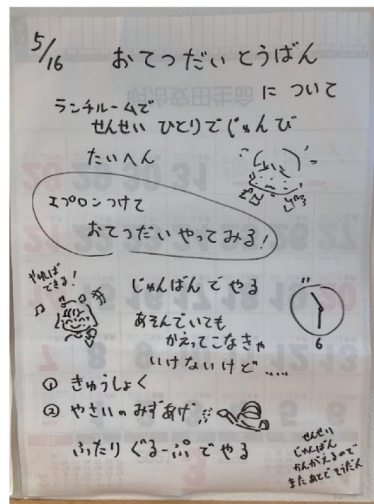 5/16
おてつだいとうばん
について
ランチルームで
せんせい ひとりで じゅんび
たいへん
エプロンつけて
おてつだいやってみる！
やればできる！
じゅんばんでやる
あそんでいても
かえってこなきゃ
いけないけど……
11
6
① きゅうしょく
② やさいのみずあげ
ふたりぐるーぷでやる
せんせい
じゅんばん
かんがえるので
またあとでそうだん